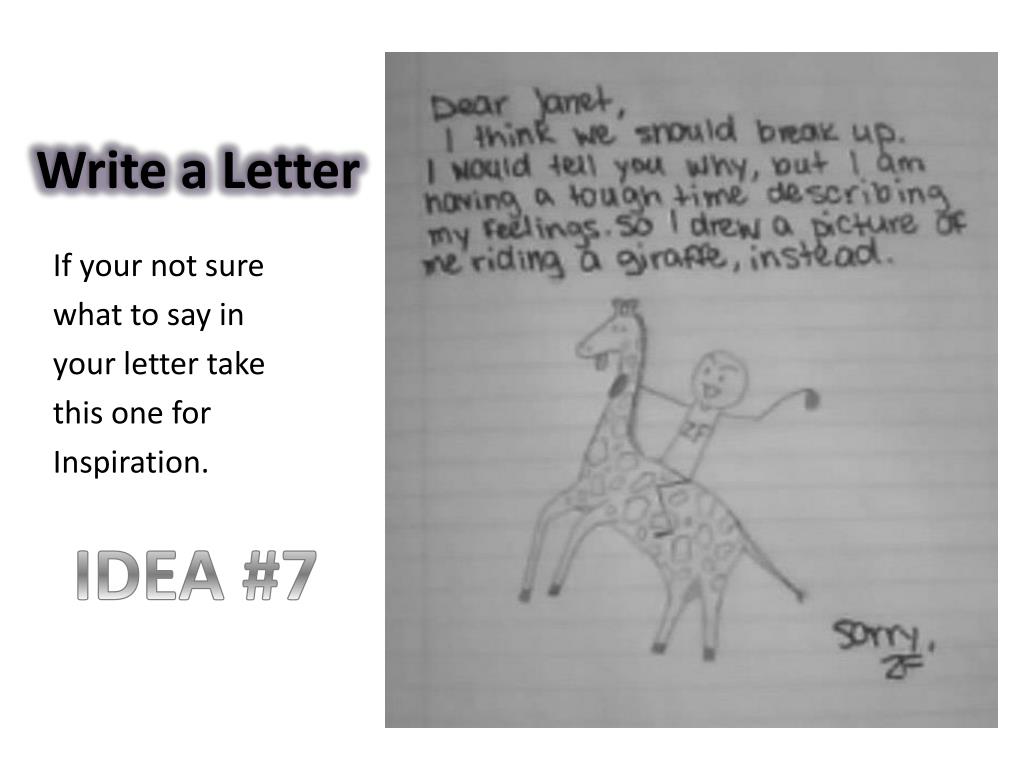 Write a Letter
If your not sure
what to say in
your letter take
this one for
Inspiration.
IDEA #7
Dear Janet,
I think we should break up.
I would tell you why, but I am
having a tough time describing
my feelings. So I drew a picture of
me riding a giraffe, instead.
ZF
sorry,
ZF